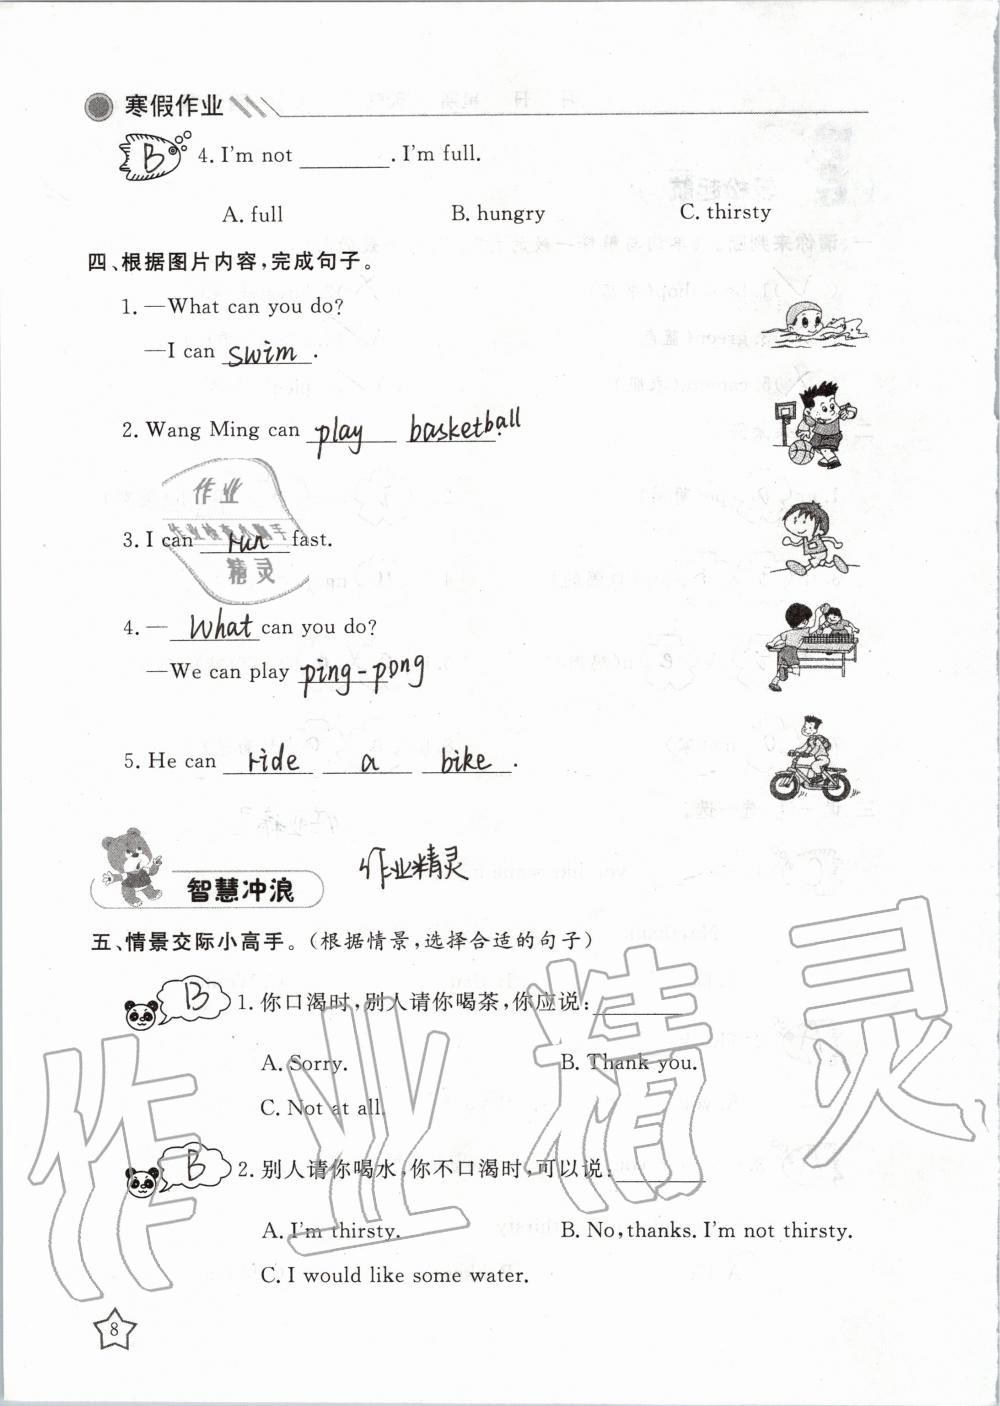 寒假作业
B 4. I'm not ________. I'm full.
A. full B. hungry C. thirsty
四、根据图片内容,完成句子。
1. —What can you do?
—I can swim.
2. Wang Ming can play basketball.
作业
作业检查小助手
3. I can run fast.
精灵
4. —What can you do?
—We can play ping-pong
5. He can ride a bike.
作业精灵
智慧冲浪
五、情景交际小高手。(根据情景,选择合适的句子)
B 1. 你口渴时,别人请你喝茶,你应说:________
A. Sorry. B. Thank you.
C. Not at all.
作业精灵
B 2. 别人请你喝水,你不口渴时,可以说:________
A. I'm thirsty. B. No, thanks. I'm not thirsty.
C. I would like some water.
8